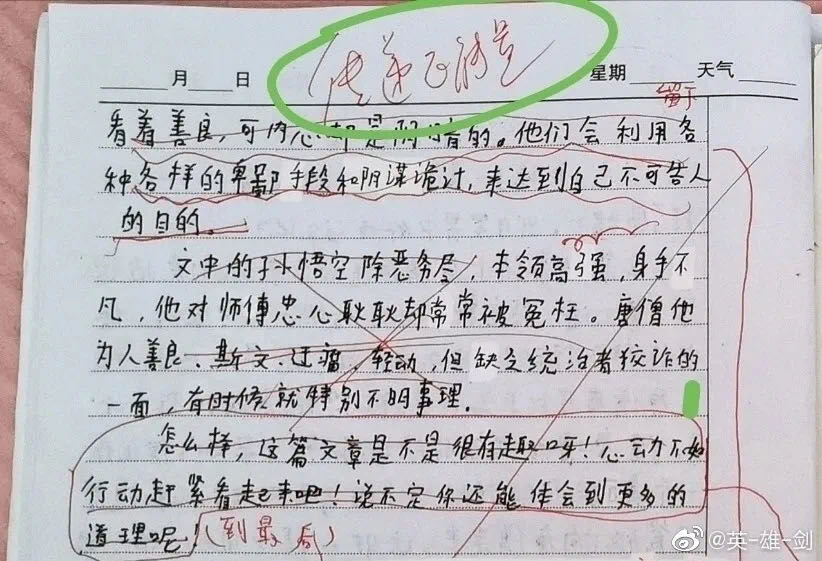 传递正能量
月 日 星期 天气
留下
看着善良，可内心却是阴暗的。他们会利用各
种各样的卑鄙手段和阴谋诡计，来达到自己不可告人
的目的。
文中的孙悟空除恶务尽，本领高强，身手不
凡，他对师傅忠心耿耿却常常被冤枉。唐僧他
为人善良、斯文、迂腐、轻动，但缺乏统治者狡诈的
一面，有时候就特别不明事理。
怎么样，这篇文章是不是很有趣呀！心动不如
行动赶紧看起来吧！说不定你还能体会到更多的
道理呢！(到最后)
@英-雄-剑